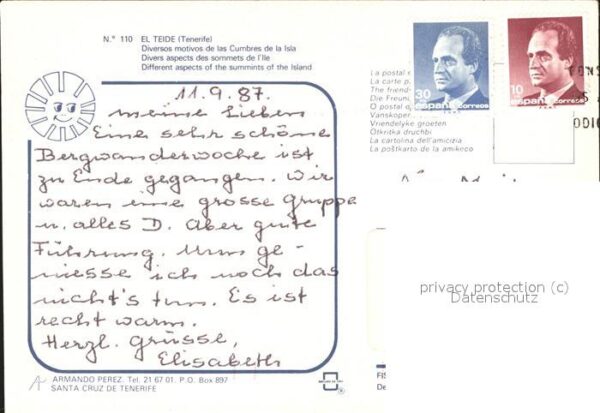 N.º 110 EL TEIDE (Tenerife)
Diversos motivos de las Cumbres de la Isla
Divers aspects des sommets de l'Ile
Different aspects of the summints of the Island
11.9.87.
meine Lieben
Eine sehr schöne
Bergwanderwoche ist
zu Ende gegangen. Wir
waren eine grosse Gruppe
u. alles D. Aber gute
Führung. Nun ge-
niesse ich noch das
nicht's tun. Es ist
recht warm.
Herzl. Grüsse,
Elisabeth
ARMANDO PEREZ. Tel. 21 67 01. P.O. Box 897
SANTA CRUZ DE TENERIFE
30
españa correos
10
españa correos
La postal
La carte
The friend
Die Freun
O postal
Vanskoper
Vriendelyke groeten
Otkritka druchbi
La cartolina dell'amicizia
La poŝtkarto de la amikeco
privacy protection (c)
Datenschutz
FIS
De